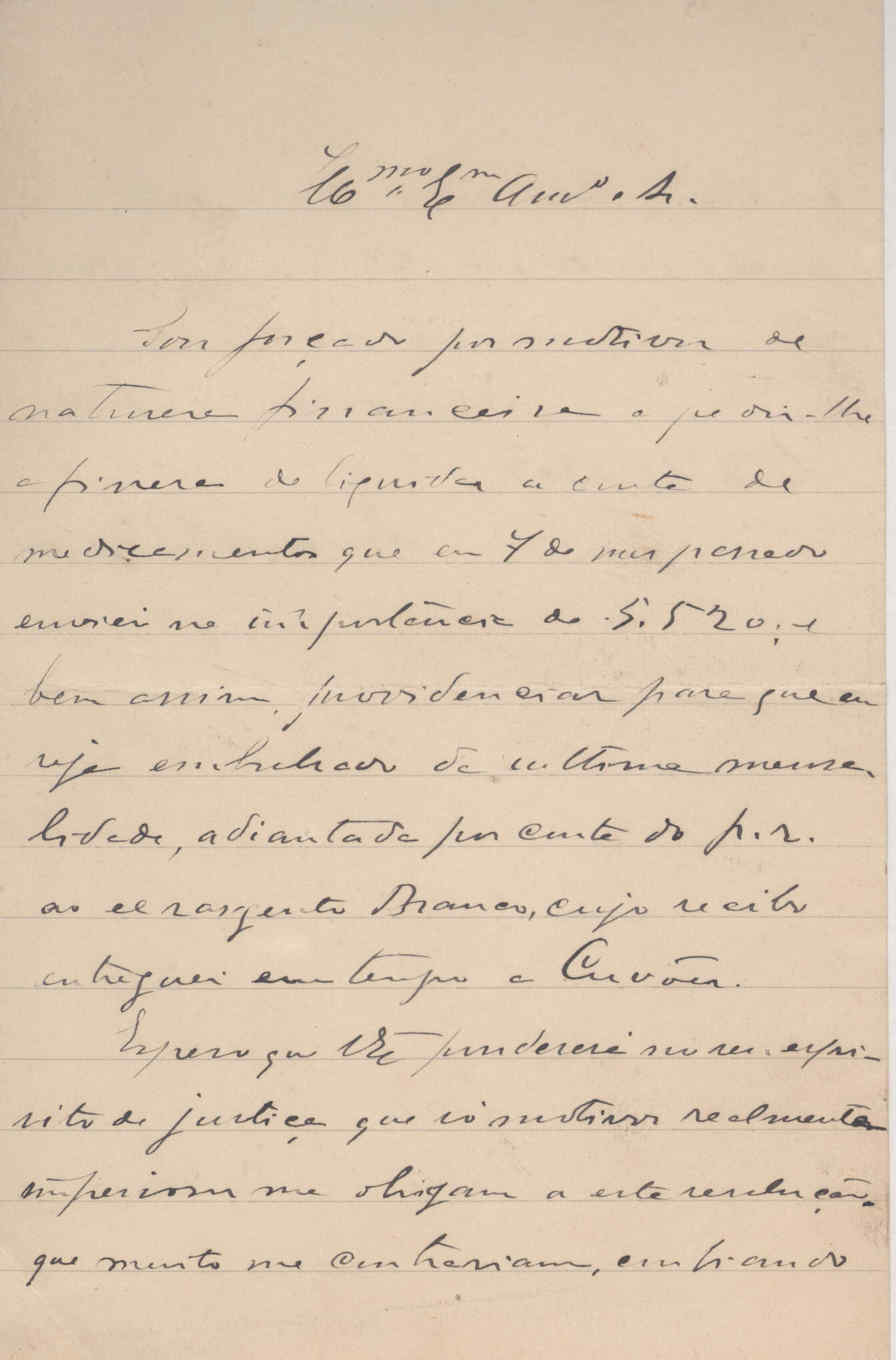 Ill.mo Ex.mo Am.o e Sr.
Sou forçado por motivos de
natureza financeira a pedir-lhe
a fineza de liquidar a conta de
medicamentos que em 7 do mes passado
enviei na importância de 5.520; e
bem assim, providenciar para que eu
seja embolsado da ultima mensa-
lidade, adiantada por conta do p. r.
ao sargento Branco, cujo recibo
entreguei em tempo a
Espero que VExª ponderará no seu espi-
rito de justiça que só motivos realmente
imperiosos me obrigam a esta resolução
que muito me contrariam, confiando